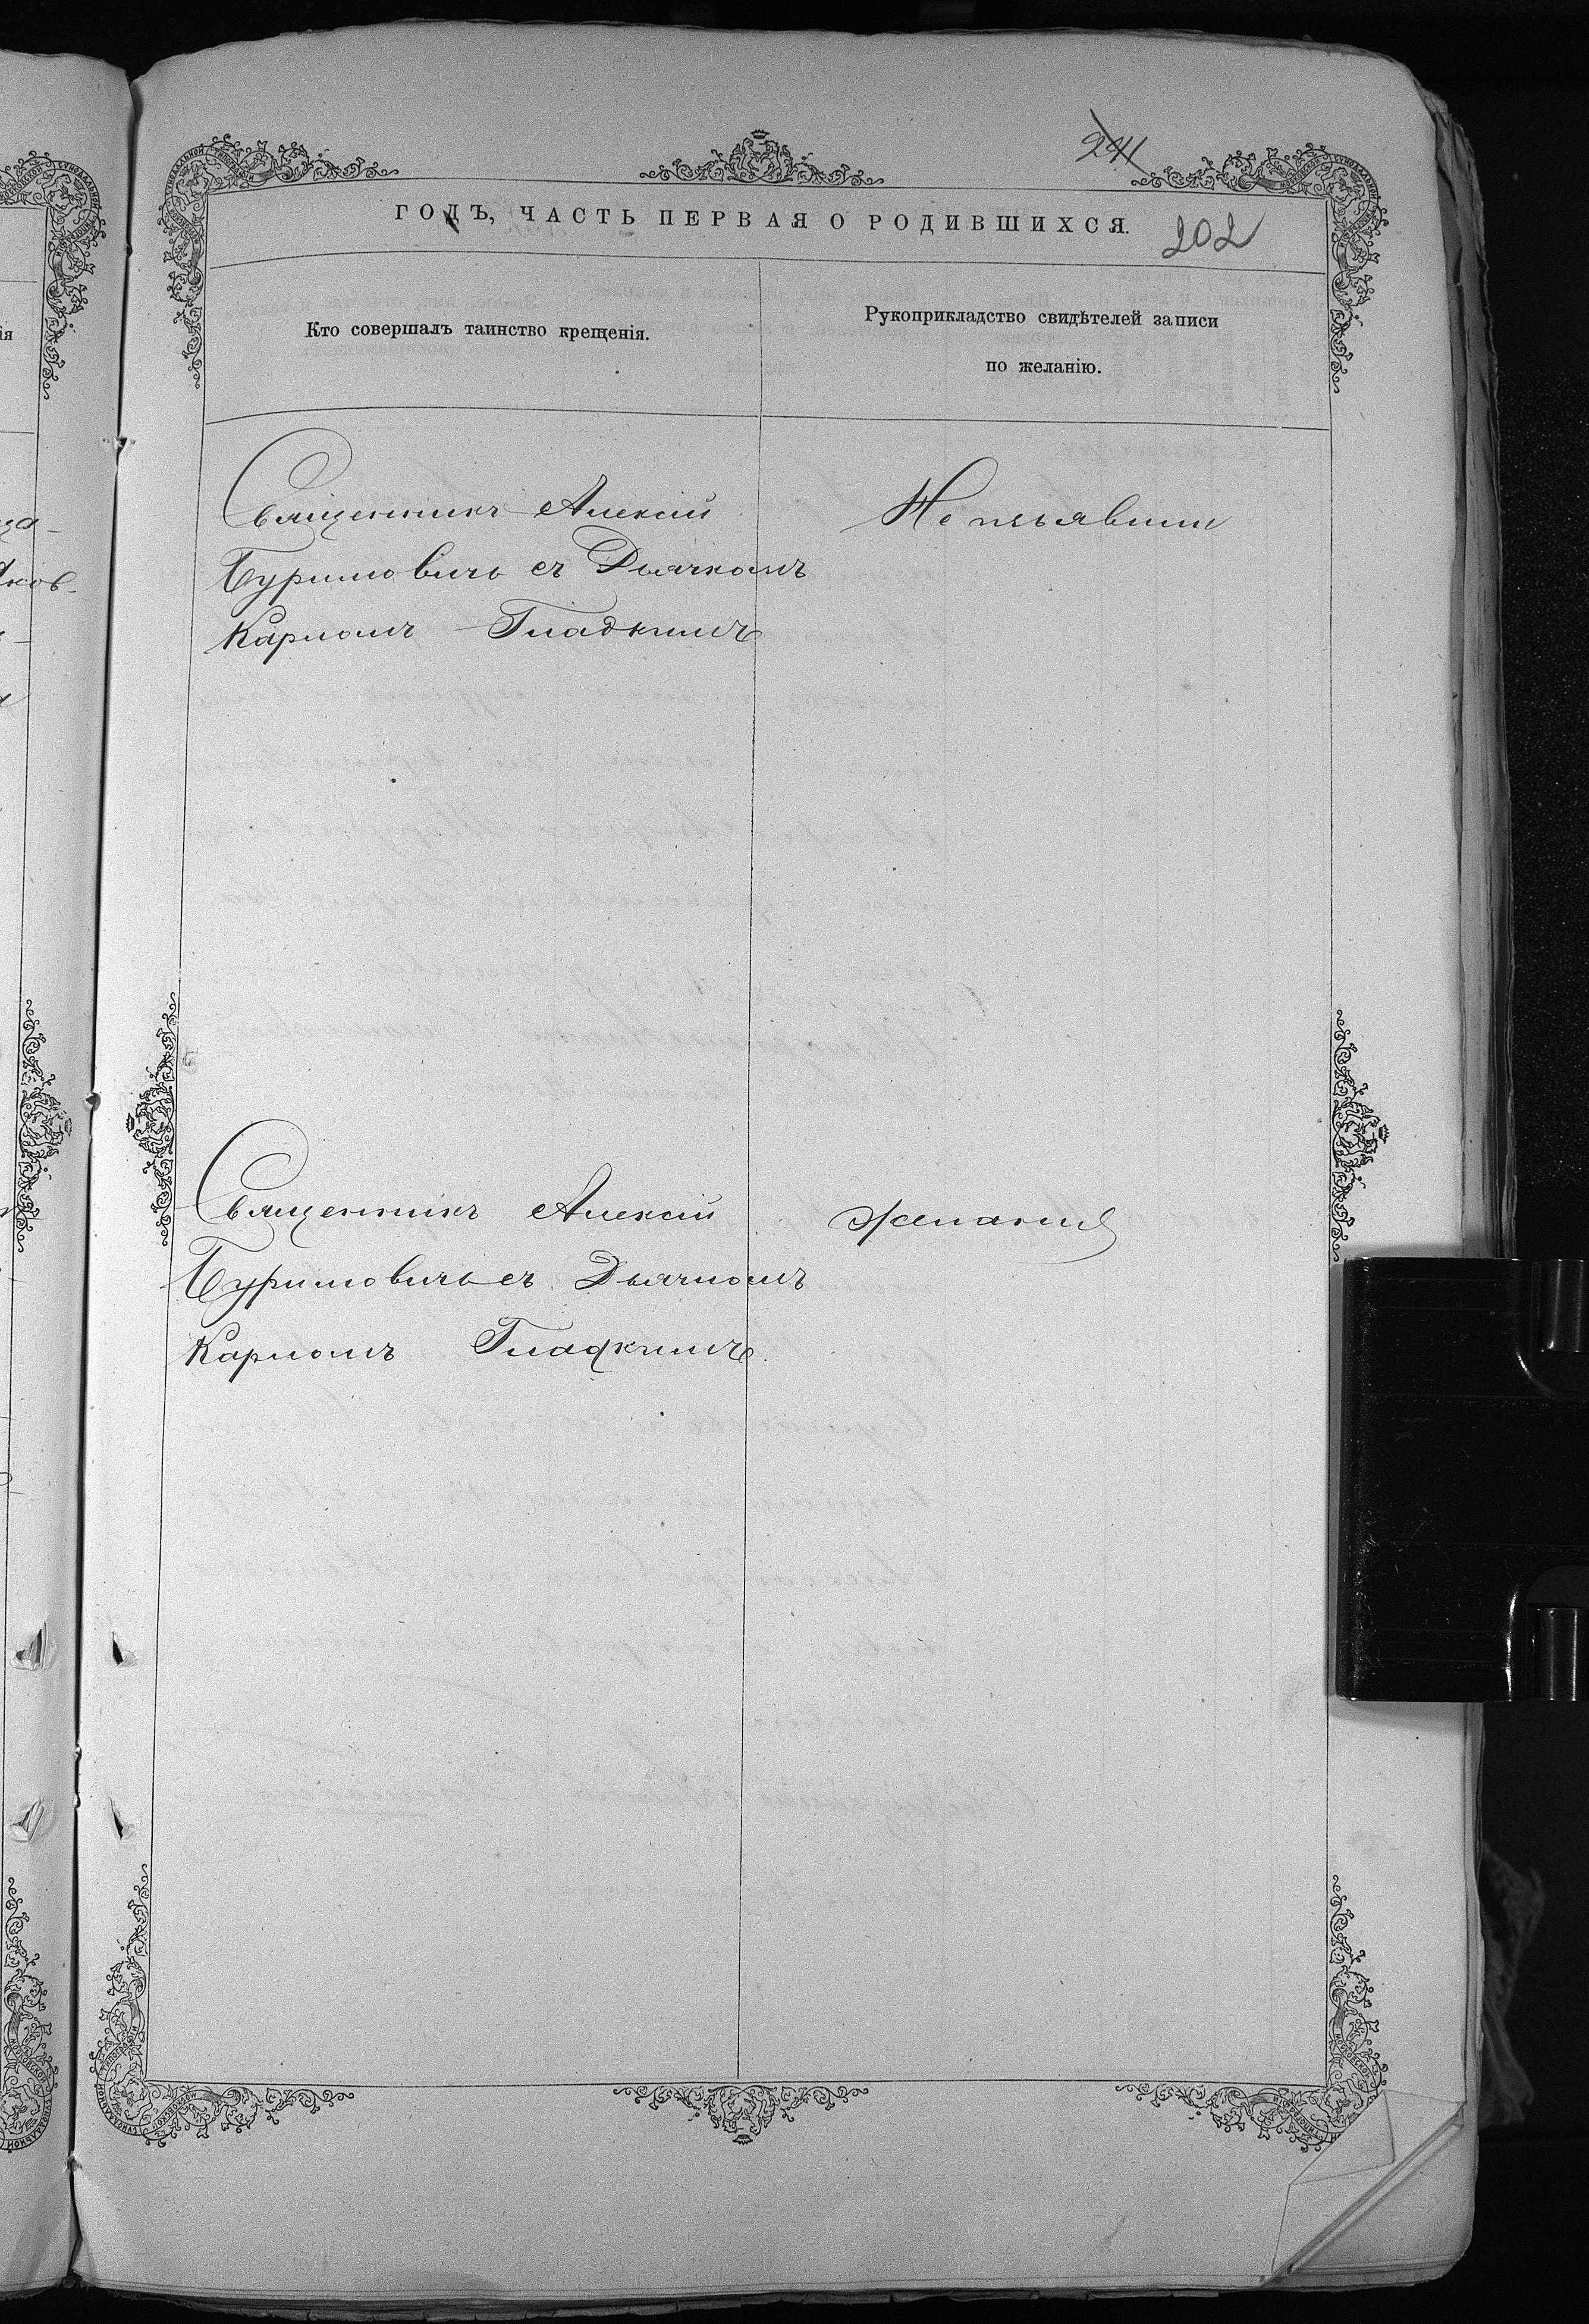 241
ГОДЪ, ЧАСТЬ ПЕРВАЯ О РОДИВШИХСЯ.
202
Кто совершалъ таинство крещенія.
Рукоприкладство свидѣтелей записи
по желанію.
Священникъ Алексій
Буримовичь съ Дьячкомъ
Карпомъ Гладкимъ
Не изъявили
Священникъ Алексій
Буримовичь съ Дьячкомъ
Карпомъ Гладкимъ.
желанія